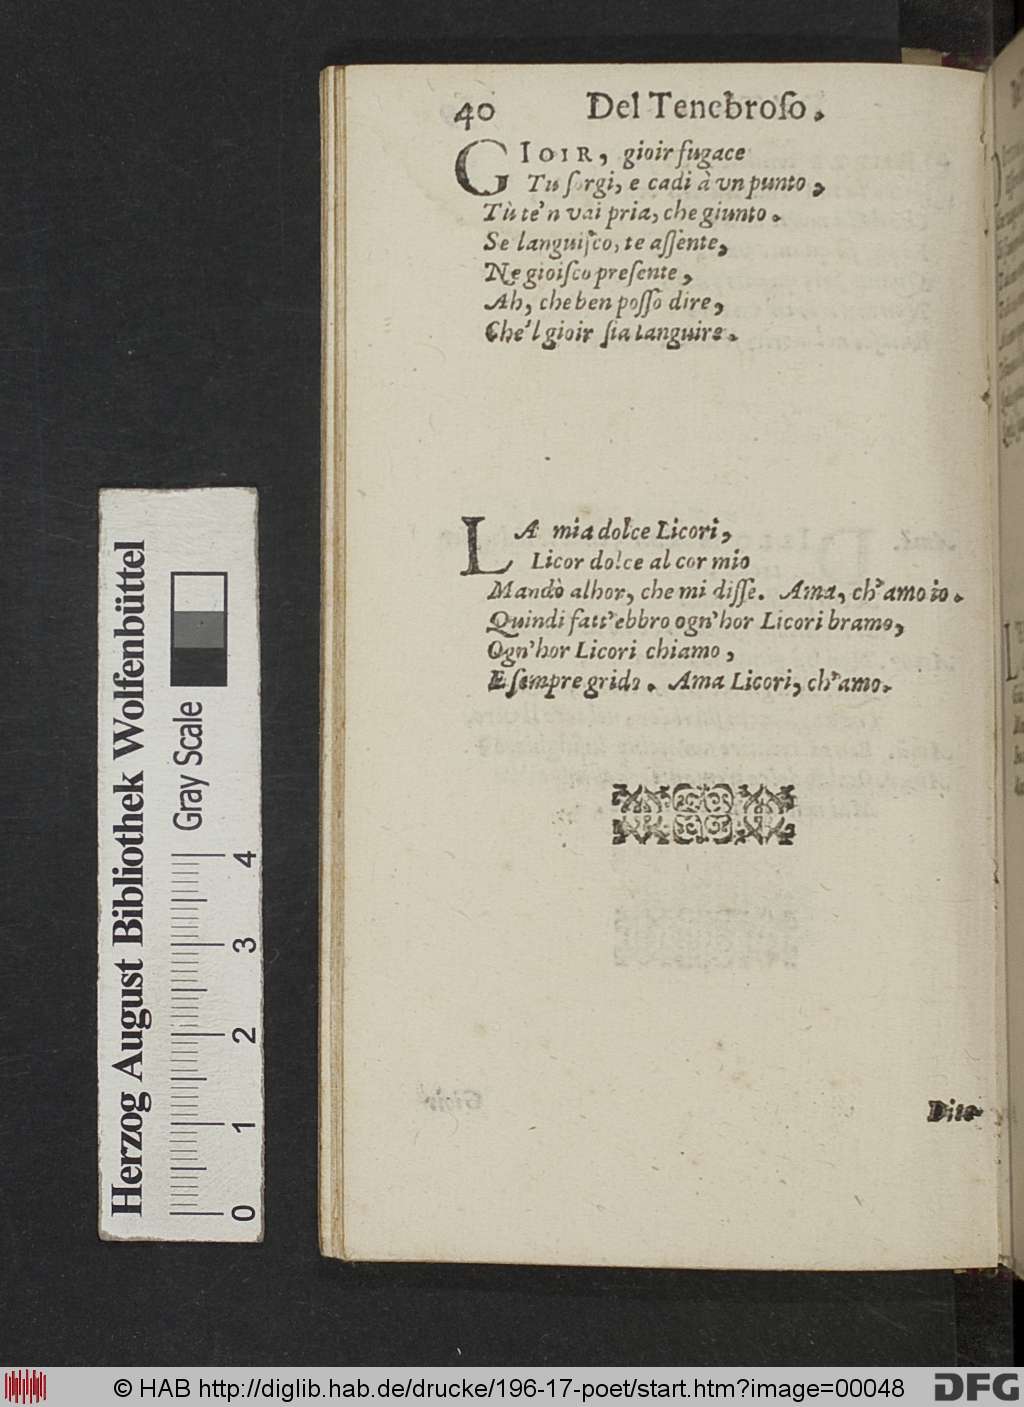 40 Del Tenebroſo.
GIOIR, gioir fugace
Tu ſorgi, e cadi à vn punto,
Tù te'n vai pria, che giunto.
Se languiſco, te aſſente,
Ne gioiſco preſente,
Ah, che ben poſſo dire,
Che'l gioir ſia languire.
LA mia dolce Licori,
Licor dolce al cor mio
Mandò alhor, che mi diſſe. Ama, ch'amo io.
Quindi fatt'ebbro ogn'hor Licori bramo,
Ogn'hor Licori chiamo,
E ſempre grido. Ama Licori, ch'amo.
Herzog August Bibliothek Wolfenbüttel
Gray Scale
0 1 2 3 4
© HAB http://diglib.hab.de/drucke/196-17-poet/start.htm?image=00048
DFG